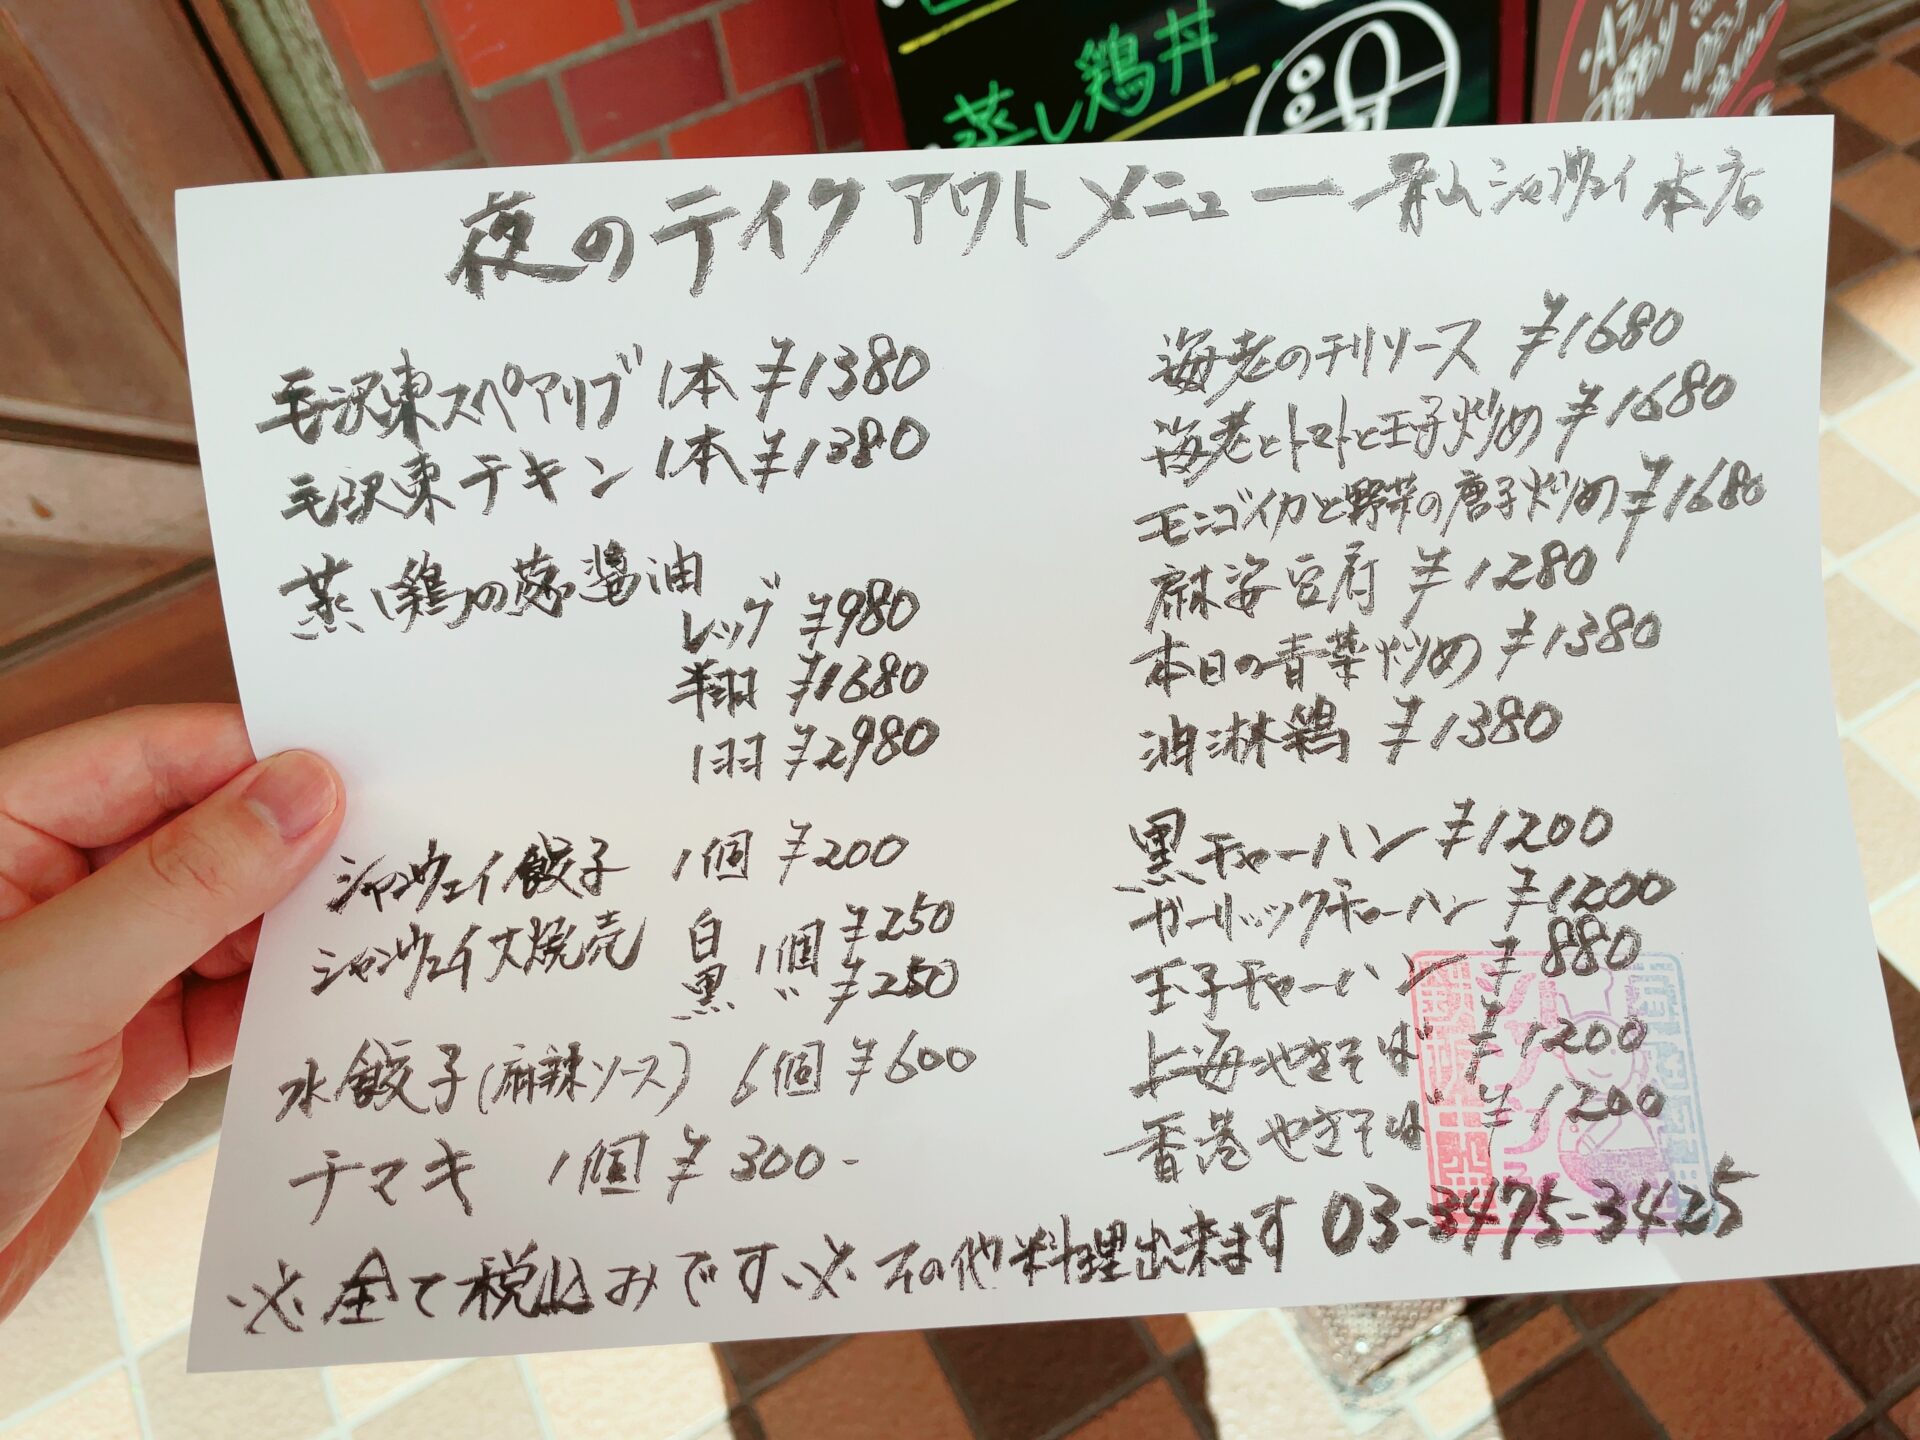 蒸し鶏丼
夜のテイクアウトメニュー 青山シャンウェイ本店
毛沢東スペアリブ 1本 ¥1380
毛沢東チキン 1本 ¥1380
蒸し鶏の葱醤油
レッグ ¥980
半羽 ¥1680
1羽 ¥2980
シャンウェイ餃子 1個 ¥200
シャンウェイ大焼売 白 1個 ¥250
黒 〃 ¥250
水餃子(麻辣ソース) 6個 ¥600
チマキ 1個 ¥300-
海老のチリソース ¥1680
海老とトマトと玉子炒め ¥1680
モンゴイカと野菜の唐子炒め ¥1680
麻婆豆腐 ¥1280
本日の青菜炒め ¥1380
油淋鶏 ¥1380
黒チャーハン ¥1200
ガーリックチャーハン ¥1200
玉子チャーハン ¥880
上海やきそば ¥1200
香港やきそば ¥1200
※全て税込みです※その他料理出来ます 03-3475-3425